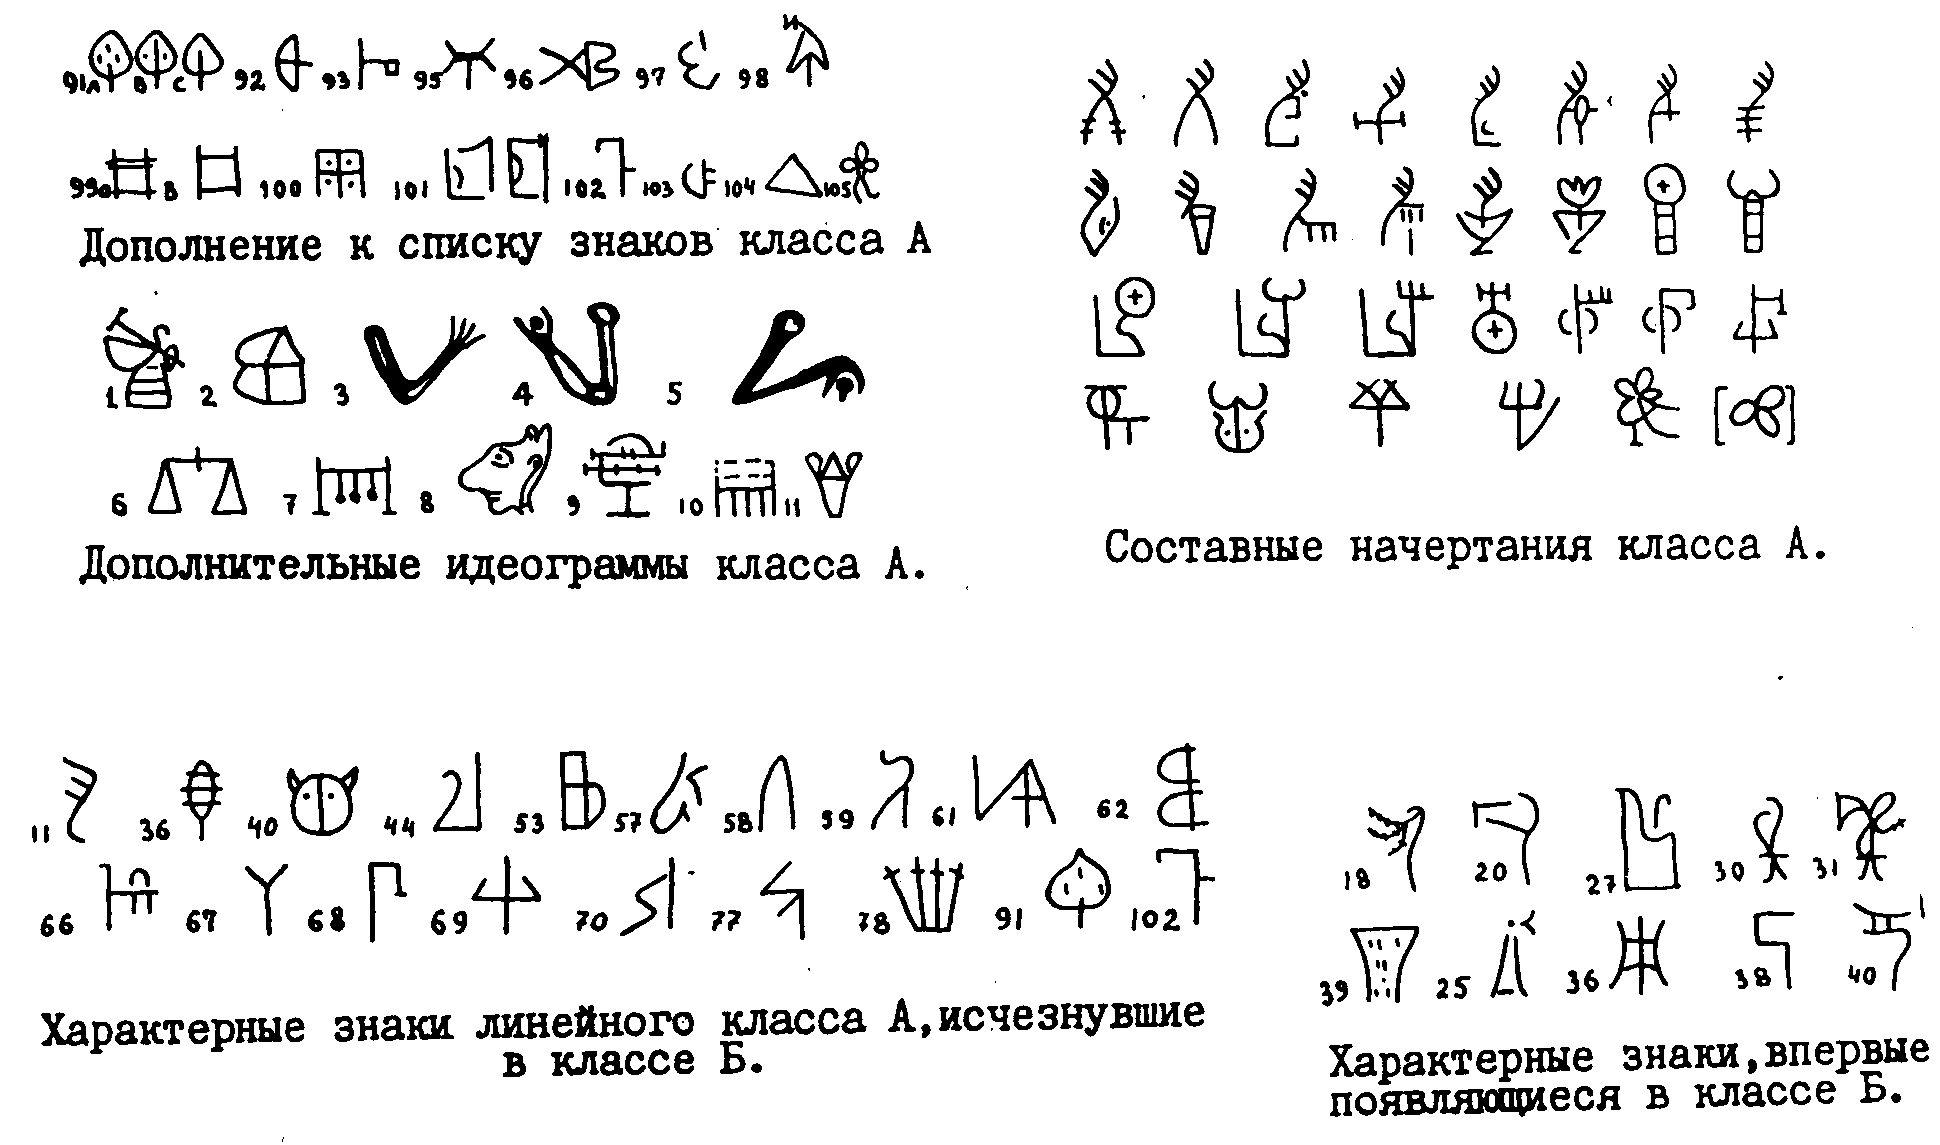 91A B C 92 93 95 96 97 98
99a B 100 101 102 103 104 105
Дополнение к списку знаков класса А
1 2 3 4 5
6 7 8 9 10 11
Дополнительные идеограммы класса А.
Составные начертания класса А.
11 36 40 44 53 57 58 59 61 62
66 67 68 69 70 77 78 91 102
Характерные знаки линейного класса А,исчезнувшие
в классе Б.
18 20 27 30 31
39 25 36 38 40
Характерные знаки,впервые
появляющиеся в классе Б.